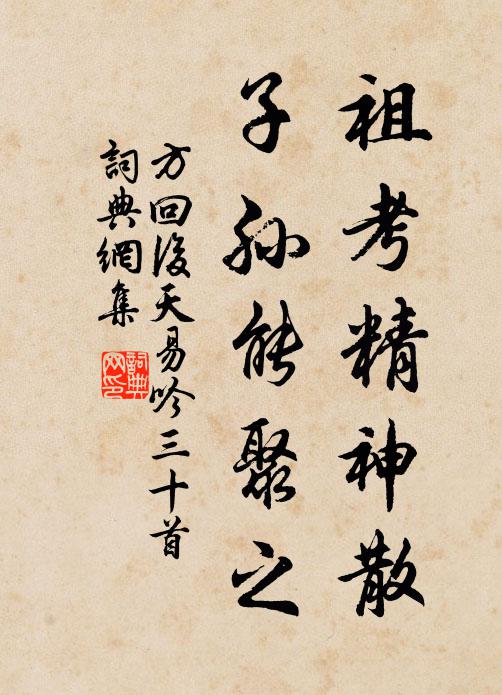 祖考精神散
子孙能聚之
方回後天易吟三十首
詞典網集
詞典网印